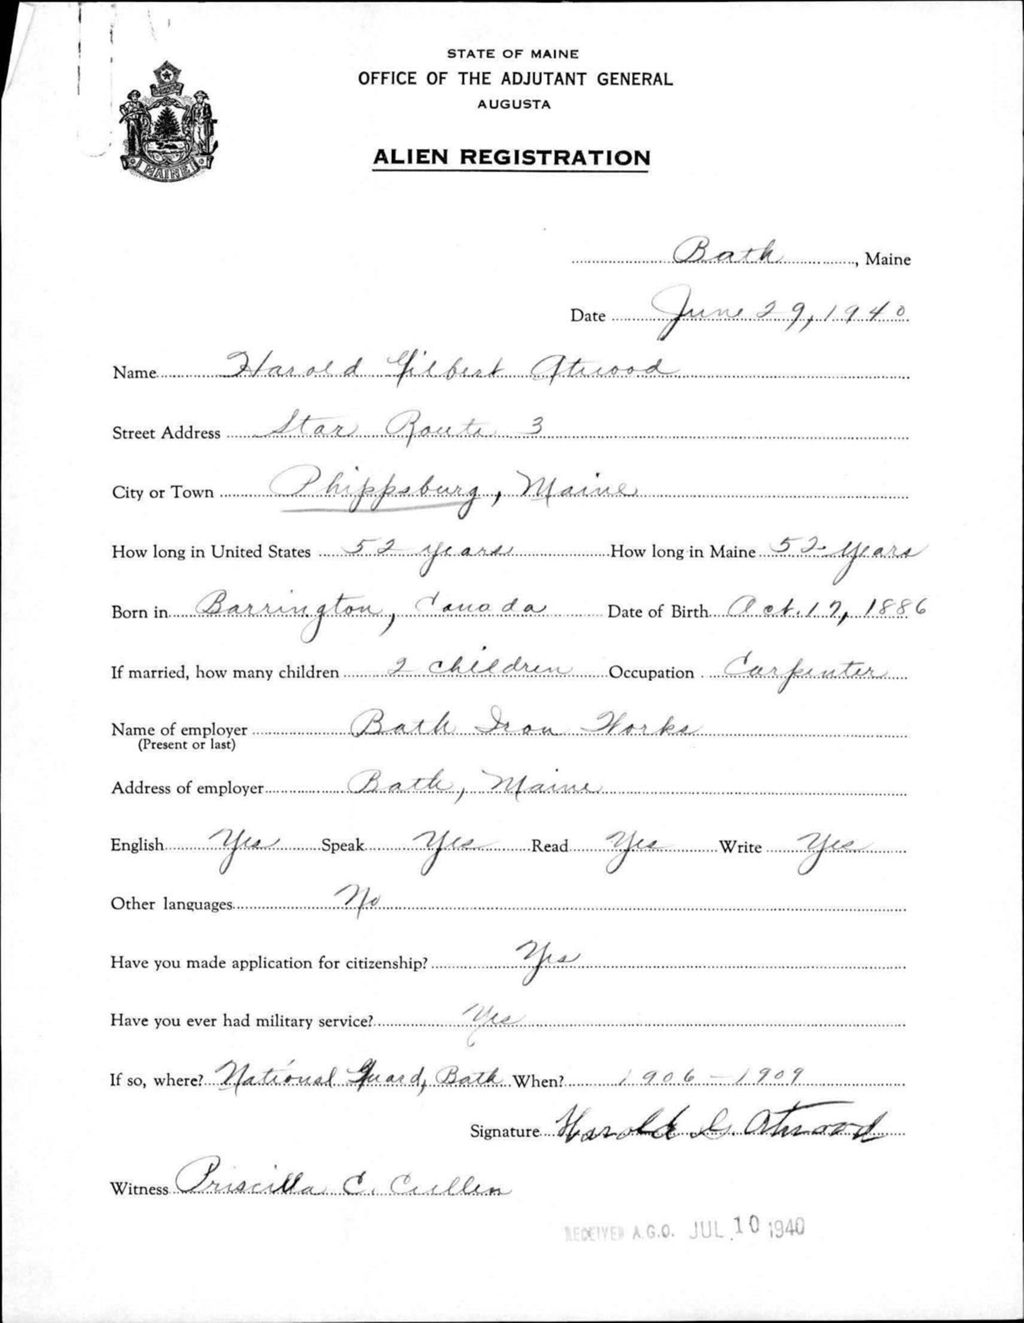 STATE OF MAINE
OFFICE OF THE ADJUTANT GENERAL
AUGUSTA
ALIEN REGISTRATION
MAINE
Bath, Maine
Date June 29, 1940
Name Harold Gilbert Atwood
Street Address Star Route 3
City or Town Phippsburg, Maine
How long in United States 52 years How long in Maine 52 years
Born in Barrington, Canada Date of Birth Oct. 17, 1886
If married, how many children 2 children Occupation Carpenter
Name of employer Bath Iron Works
(Present or last)
Address of employer Bath, Maine
English Yes Speak Yes Read Yes Write Yes
Other languages No
Have you made application for citizenship? Yes
Have you ever had military service? Yes
If so, where? National Guard, Bath When? 1906-1909
Signature Harold G. Atwood
Witness Priscilla C. Cullen
RECEIVED A.G.O. JUL 10 1940